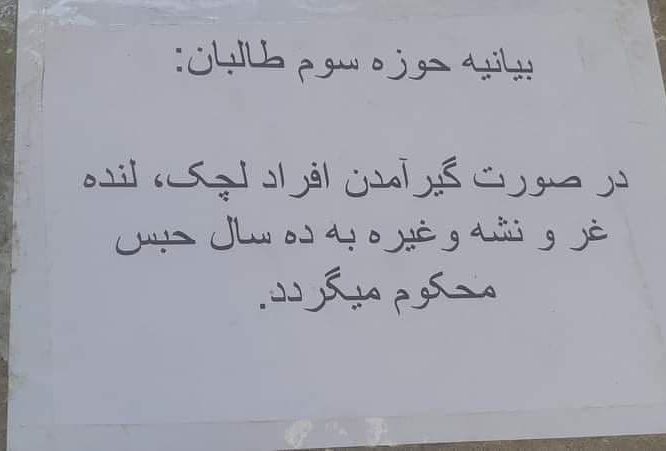 بیانیه حوزه سوم طالبان:
در صورت گیر آمدن افراد لچک، لنده
غر و نشه و غیره به ده سال حبس
محکوم میگردد.